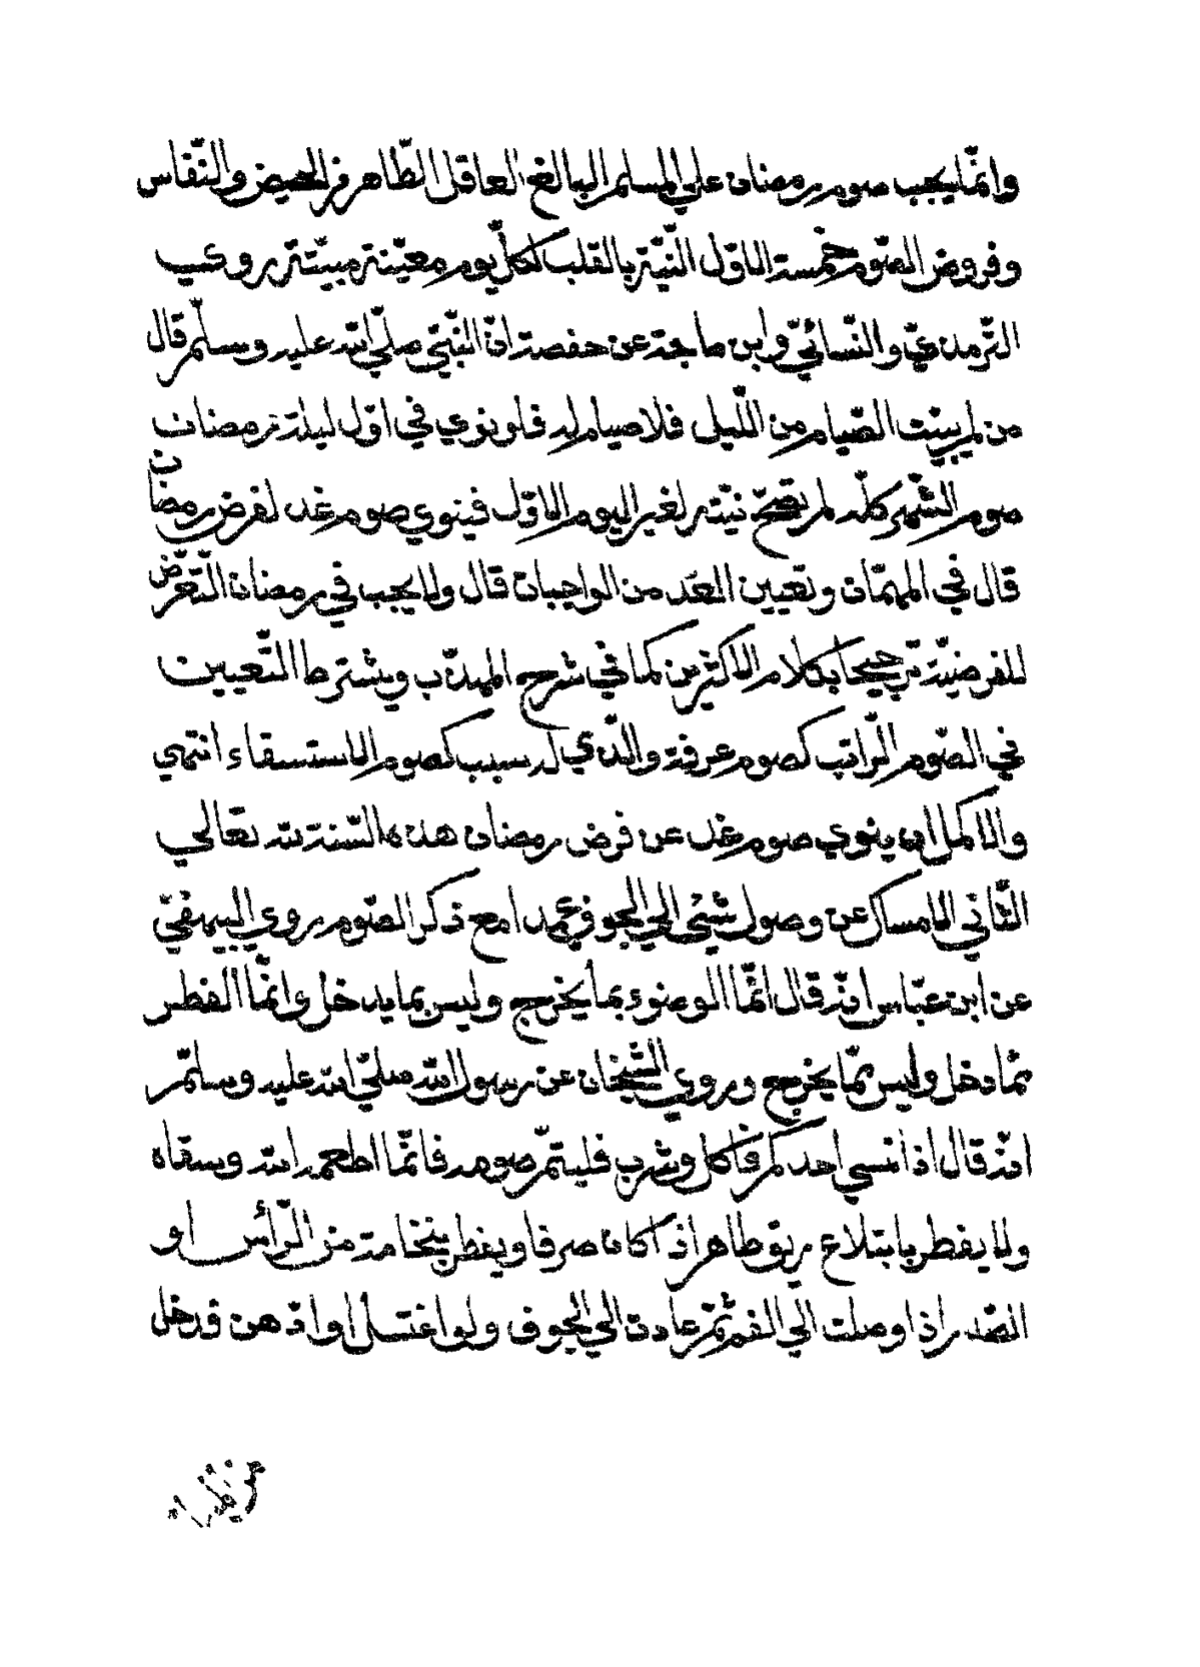 وانّما يجب صوم رمضان علي المسلم البالغ العاقل الطّاهر من الحيض والنّفاس
وفروض الصّوم خمسة الاوّل النّيّة بالقلب لكلّ يوم معيّنة مبيّتة روي
التّرمذيّ والنّسائيّ وابن ماجة عن حفصة انّ النّبيّ صلّي الله عليه وسلّم قال
من لم يبيّت الصّيام من اللّيل فلا صيام له فلو نوي في اوّل ليلة رمضان
صوم الشّهر كلّه لم يصحّ نيّته لغير اليوم الاوّل فينوي صوم غد لفرض رمضان
قال في المهمّات وتعيين الغد من الواجبات قال ولا يجب في رمضان التّعرّض
للفرضيّة ترجيحا بكلام الاكثرين كما في شرح المهذّب ويشترط التّعيين
في الصّوم الرّاتب كصوم عرفة والّذي له سبب كصوم الاستسقاء انتهي
والاكمل ان ينوي صوم غد عن فرض رمضان هذه السّنة لله تعالي
الثّاني الامساك عن وصول شيئ الي الجوف عمدا مع ذكر الصّوم روي البيهقيّ
عن ابن عبّاس انّه قال انّما الوضوء بما يخرج وليس بما يدخل وانّما الفطر
ممّا دخل وليس ممّا يخرج وروي الشّيخان عن رسول الله صلّي الله عليه وسلّم
انّه قال اذا نسي احدكم فاكل وشرب فليتمّ صومه فانّما اطعمه الله وسقاه
ولا يفطر بابتلاع ريق طاهر اذا كان صرفا ويفطر بنخامة من الرّأس او
الصّدر اذا وصلت الي الفم ثمّ عادت الي الجوف ولو اغتسل او ادّهن فدخل